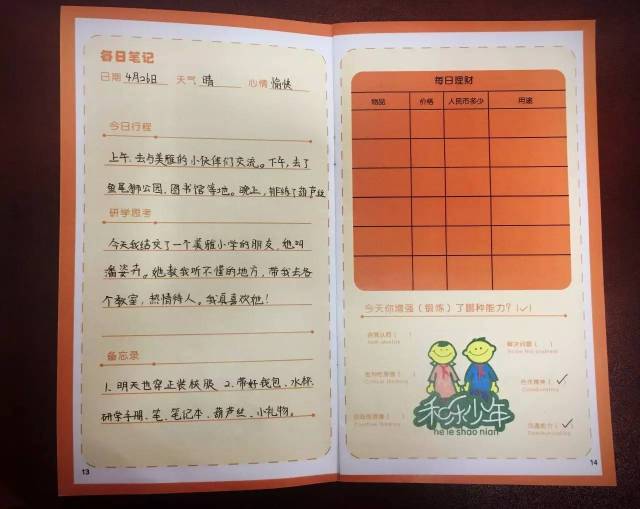 每日笔记
日期 4月26日 天气 晴 心情 愉快
今日行程
上午,去与美雅的小伙伴们交流。下午,去了
鱼尾狮公园,图书馆等地。晚上,排练了葫芦丝
研学思考
今天我结交了一个美雅小学的朋友,她叫
潘姿卉。她教我听不懂的地方,带我去各
个教室,热情待人。我真喜欢她!
备忘录
1. 明天也穿正装校服 2. 带好钱包、水杯
研学手册、笔、笔记本、葫芦丝、小礼物。
13
每日理财
物品 价格 人民币多少 用途
今天你增强(锻炼)了哪种能力?(✓)
自我认同( )
Self-identity
解决问题( )
批判性思维( )
Critical thinking
合作精神(✓)
Collaborating
创造性思维( )
沟通能力(✓)
Communicating
和乐少年
he le shao nian
14